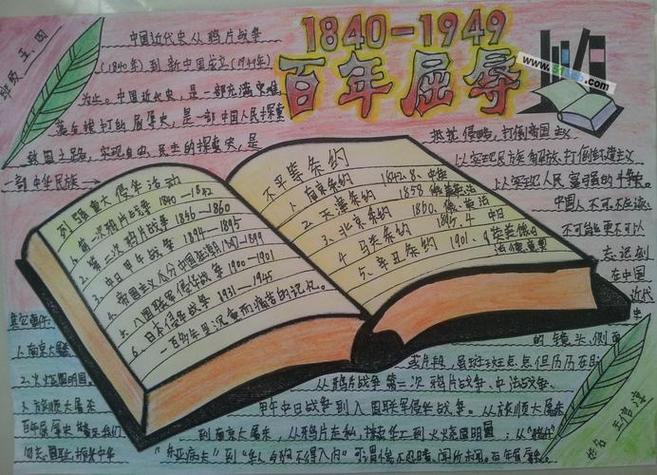 1840-1949
百年屈辱
中国近代史从鸦片战争
(1840年)到新中国成立(1949年)
为止。中国近代史,是一部充满灾难、
落后挨打的屈辱史,是一部中国人民探索
救国之路,实现自由、民主的探索史,是
一部中华民族
抵抗侵略,打倒帝国主义
以实现民族解放、打倒封建主义
以实现人民富强的
中国人不可不
不可能更不可以
忘记
在中国
近代
史
的镜头,侧面
或片段,
但历历在目
从鸦片战争第二次鸦片战争、中法战争、
甲午中日战争到八国联军侵华战争。从旅顺大屠杀
到南京大屠杀,从鸦片走私,
到火烧圆明园
"东亚病夫"到"华人与狗不得入内"
列强重大侵华活动
1、第一次鸦片战争 1840-1842
2、第二次鸦片战争 1856-1860
3、中日甲午战争 1894-1895
4、帝国主义瓜分中国狂潮 1897-1899
5、八国联军侵华战争 1900-1901
6、日本侵华战争 1931-1945
一百多年里沉重而痛苦的记忆。
不平等条约
1、南京条约 1842.8、中英
2、天津条约 1858、俄美英法
3、北京条约 1860、俄、英法
4、马关条约 1895、4、中日
5、辛丑条约 1901、9
其它事件:
1、南京大屠杀
2、火烧圆明园。
3、旅顺大屠杀
班级 五、四
姓名
www.
.com